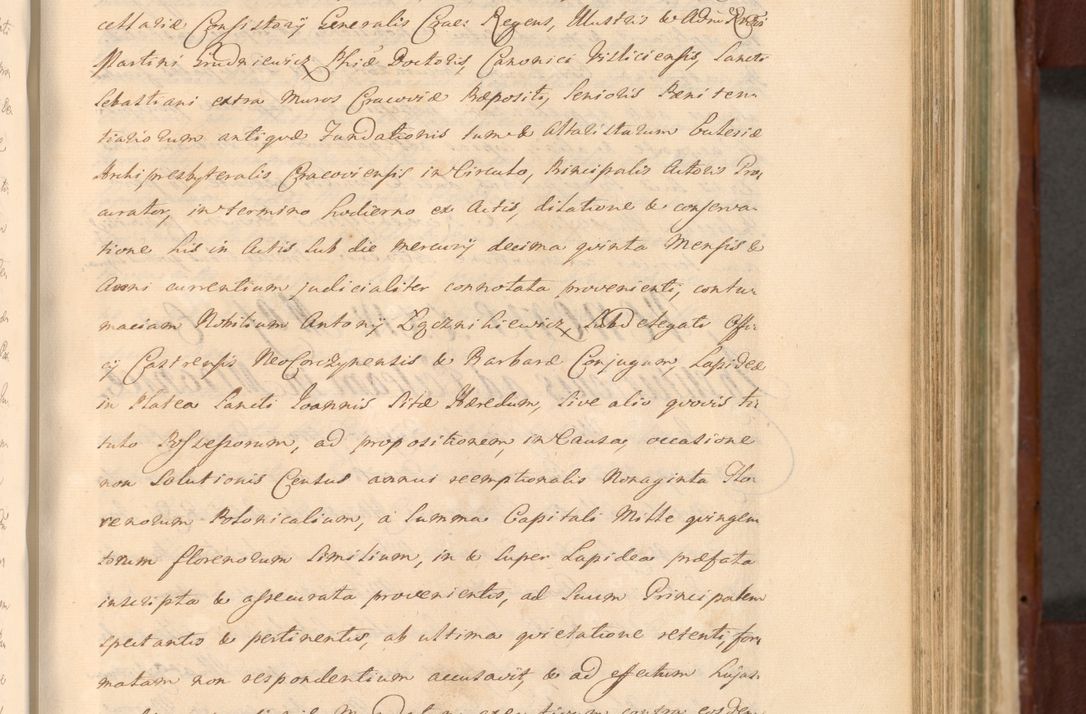 cellariæ Consistorÿ Generalis Crac: Regens, Illustris & Adm: Rndi
Martini Grudniewicz Phiæ Doctoris, Canonici Visliciensis, Sancti
Sebastiani extra Muros Cracoviæ Præpositi, Senioris Pæniten:
tiariorum antiquæ Fundationis tum & Altaristarum Ecclesiæ
Archipresbyteralis Cracoviensis in Circulo, Principalis Actoris Pro:
curator, in termino hodierno ex Actis, dilatione & conserva:
tione his in Actis sub die Mercurÿ decima quinta Mensis &
Anni currentium judicialiter connotata provenienti, contu:
maciam Nobilium Antonÿ Łącznikiewicz SubDelegati Offi:
cÿ Castrensis NeoCorczynensis & Barbaræ Conjugum, Lapideæ
in Platea Sancti Joannis Sitæ Hæredum, sive alio quovis ti:
tulo Possessorum, ad propositionem, in Causa, occasione
non Solutionis Census annui reemptionalis Nonaginta Flo:
renorum Polonicalium, a Summa Capitali Mille quingen
torum florenorum similium, in & super Lapidea præfata
inscripta & assecurata provenientis, ad Suum Principalem
spectantis & pertinentis, ab ultima quietatione retenti, for:
matam non respondentium accusavit, & ad effectum hujus: